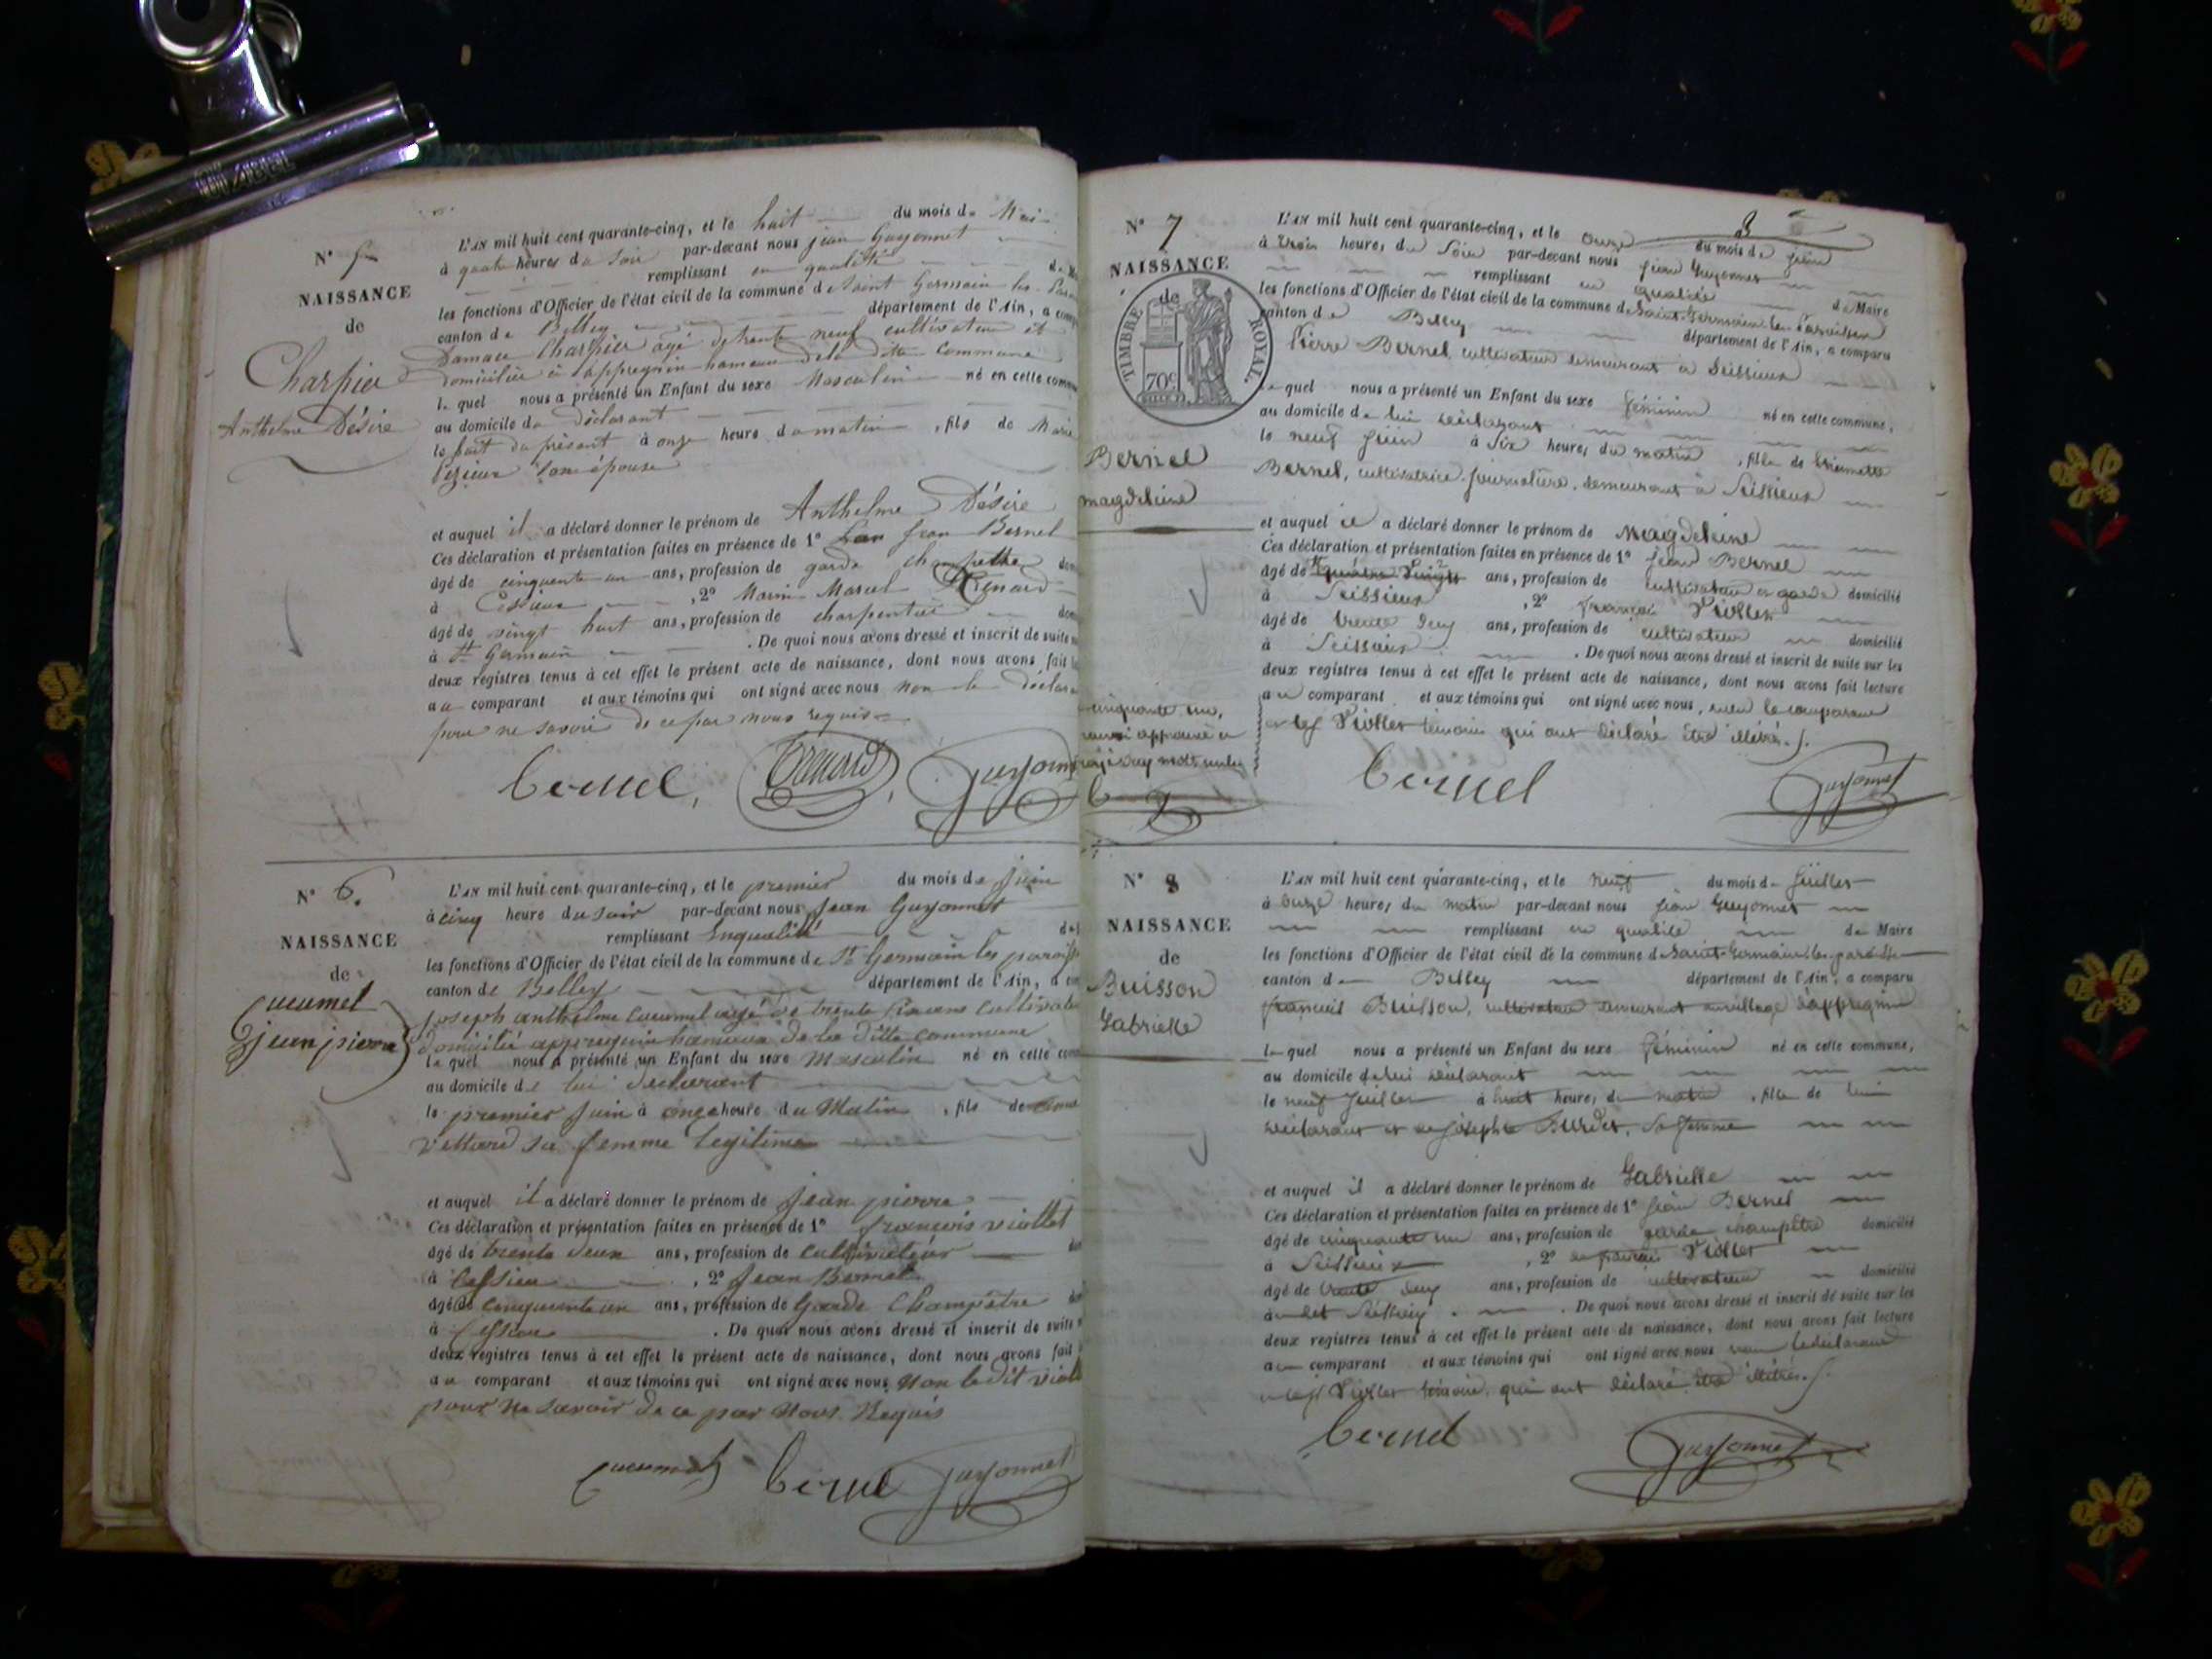 MABEL
N° 5
NAISSANCE
de
Charpier
Anthelme Désiré
L'AN mil huit cent quarante-cinq, et le huit du mois de Mai
à quatre heures du soir par-devant nous jean Guyonnet
remplissant en qualité
les fonctions d'Officier de l'état civil de la commune de Saint Germain les
canton de Belley département de l'Ain, a
Charpier âgé de trente neuf cultivateur et
domicilié à appregnin hameau de la ditte commune
le quel nous a présenté un Enfant du sexe Masculin né en cette
au domicile du déclarant
le huit du présent à onze heure du matin, fils de Marie
son épouse
et auquel il a déclaré donner le prénom de Anthelme Désiré
Ces déclaration et présentation faites en présence de 1° Jean Bernel
âgé de cinquante un ans, profession de garde champettre
à Cessieux, 2° Marin Marcel Renard
âgé de vingt huit ans, profession de charpentier
à St Germain. De quoi nous avons dressé et inscrit de suite
deux registres tenus à cet effet le présent acte de naissance, dont nous avons fait
au comparant et aux témoins qui ont signé avec nous non le
pour ne savoir de ce par nous requis
Bernel, Renard, Guyonnet
N° 6.
NAISSANCE
de
Cucumel
jean pierre
L'AN mil huit cent quarante-cinq, et le premier du mois de Juin
à cinq heure du soir par-devant nous Jean Guyonnet
remplissant Enqualité
les fonctions d'Officier de l'état civil de la commune de St Germain les
canton de Belley département de l'Ain, a
joseph anthelme Cucumel agé de trente ans
domicilié appregnin hameau de la ditte commune
le quel nous a présenté un Enfant du sexe Masculin né en cette
au domicile de lui declarant
le premier Juin à onze heure du Matin, fils de
sa femme legitime
et auquel il a déclaré donner le prénom de Jean pierre
Ces déclaration et présentation faites en présence de 1° françois viollet
âgé de trente deux ans, profession de Cultivateur
à Cessieu, 2° Jean Bernel
âgé de Cinquante un ans, profession de Garde Champêtre
à Cessieu. De quoi nous avons dressé et inscrit de suite
deux registres tenus à cet effet le présent acte de naissance, dont nous avons fait
au comparant et aux témoins qui ont signé avec nous Non le dit
pour Ne savoir de ce par Nous Requis
Cucumel Bernel Guyonnet
3
N° 7
NAISSANCE
de
TIMBRE ROYAL.
70c
Bernel
magdeleine
L'AN mil huit cent quarante-cinq, et le onze du mois de juin
à trois heures du soir par-devant nous jean Guyonnet
remplissant en qualité de Maire
les fonctions d'Officier de l'état civil de la commune de Saint-Germain les Paroisses
canton de Belley département de l'Ain, a comparu
Pierre Bernel cultivateur demeurant à Seissieux
le quel nous a présenté un Enfant du sexe féminin né en cette commune,
au domicile de lui déclarant
le neuf juin à six heures du matin, fille de
Bernel, cultivatrice journalière, demeurant à Seissieux
et auquel il a déclaré donner le prénom de Magdeleine
Ces déclaration et présentation faites en présence de 1° jean Bernel
âgé de quatre vingts ans, profession de cultivateur et garde domicilié
à Seissieux, 2° françois Viollet
âgé de trente deux ans, profession de cultivateur domicilié
à Seissieux. De quoi nous avons dressé et inscrit de suite sur les
deux registres tenus à cet effet le présent acte de naissance, dont nous avons fait lecture
au comparant et aux témoins qui ont signé avec nous, le comparant
Viollet témoin qui ont déclaré être illétrés.
cinquante un,
approuvé
Bernel Guyonnet
N° 8
NAISSANCE
de
Buisson
Gabrielle
L'AN mil huit cent quarante-cinq, et le neuf du mois de juillet
à onze heures du matin par-devant nous jean Guyonnet
remplissant en qualité de Maire
les fonctions d'Officier de l'état civil de la commune de Saint-Germain-les-paroisses
canton de Belley département de l'Ain, a comparu
françois Buisson, cultivateur demeurant au village d'appregnin
le quel nous a présenté un Enfant du sexe féminin né en cette commune,
au domicile de lui déclarant
le neuf juillet à huit heures du matin, fille de lui
déclarant et de josephe Burdet, sa femme
et auquel il a déclaré donner le prénom de Gabrielle
Ces déclaration et présentation faites en présence de 1° jean Bernel
âgé de cinquante un ans, profession de garde champêtre domicilié
à Seissieux, 2° françois Viollet
âgé de trente deux ans, profession de cultivateur domicilié
. De quoi nous avons dressé et inscrit de suite sur les
deux registres tenus à cet effet le présent acte de naissance, dont nous avons fait lecture
au comparant et aux témoins qui ont signé avec nous le déclarant
Viollet témoin, qui ont déclaré être illétrés.
Bernel Guyonnet